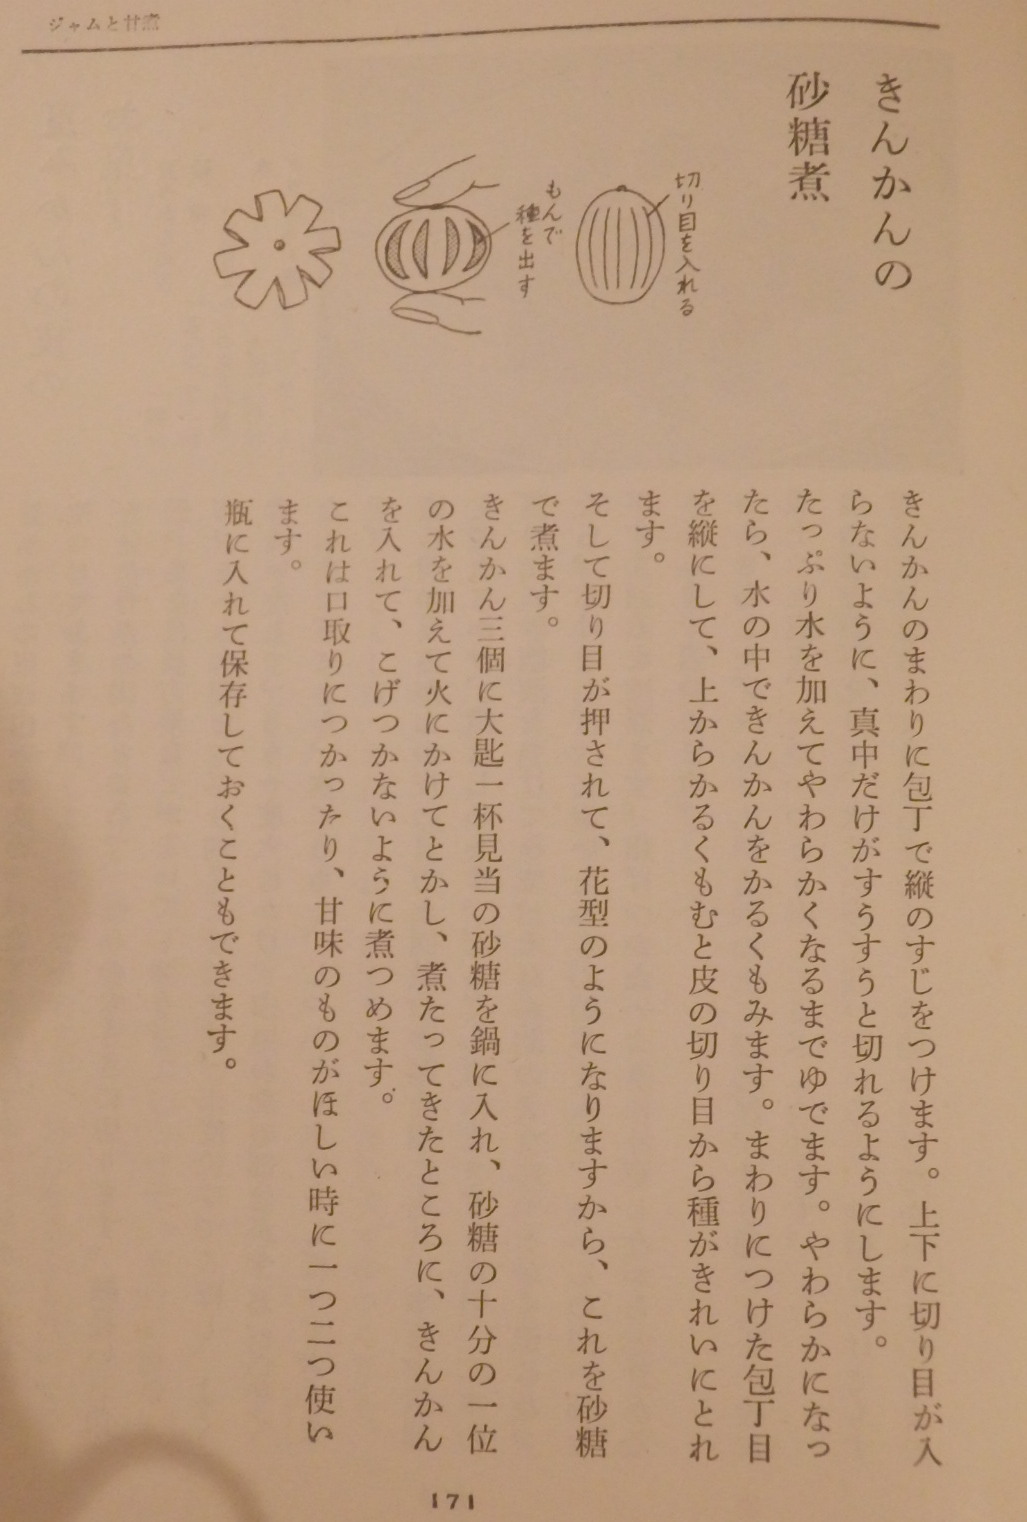 ジャムと甘煮
きんかんの
砂糖煮
切り目を入れる
もんで
種を出す
きんかんのまわりに包丁で縦のすじをつけます。上下に切り目が入
らないように、真中だけがすうすうと切れるようにします。
たっぷり水を加えてやわらかくなるまでゆでます。やわらかになっ
たら、水の中できんかんをかるくもみます。まわりにつけた包丁目
を縦にして、上からかるくもむと皮の切り目から種がきれいにとれ
ます。
そして切り目が押されて、花型のようになりますから、これを砂糖
で煮ます。
きんかん三個に大匙一杯見当の砂糖を鍋に入れ、砂糖の十分の一位
の水を加えて火にかけてとかし、煮たってきたところに、きんかん
を入れて、こげつかないように煮つめます。
これは口取りにつかったり、甘味のものがほしい時に一つ二つ使い
ます。
瓶に入れて保存しておくこともできます。
171